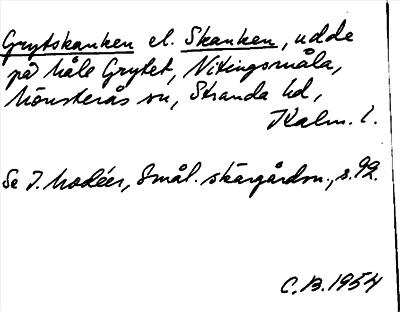 Grytskanken el. Skanken, udde
på håle Grytet, Vikingsmåla,
Mönsterås sn, Stranda hd,
Kalm. l.
Se I. Modéer, Smål. skärgårdsn., s. 92.
C.B. 1954